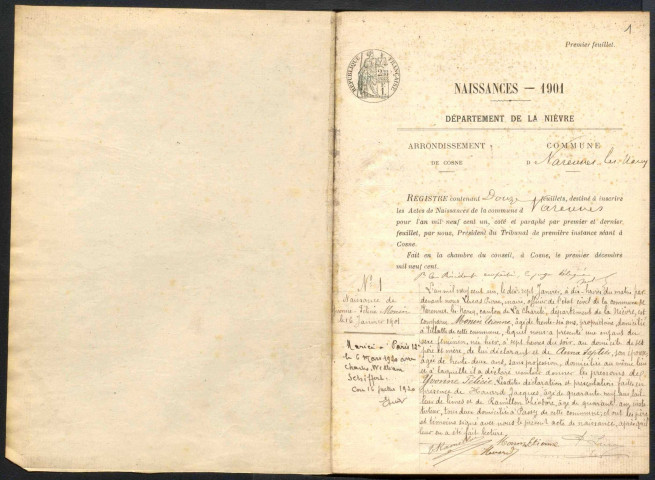 1
Premier feuillet.
RÉPUBLIQUE FRANÇAISE
NAISSANCES — 1901
DÉPARTEMENT DE LA NIÈVRE
ARRONDISSEMENT
DE COSNE
COMMUNE
D Varennes-les-Narcy
REGISTRE contenant Douze feuillets, destiné à inscrire
les Actes de Naissances de la commune d Varennes
pour l'an mil neuf cent un, coté et paraphé par premier et dernier
feuillet, par nous, Président du Tribunal de première instance séant à
Cosne.
Fait en la chambre du conseil, à Cosne, le premier décembre
mil neuf cent.
Le Président empêché, le juge
N° 1
Naissance de
Yvonne Félicie Monin
le 16 Janvier 1901
Mariée à Paris 12e
le 6 Mars 1920 avec
Charles William
L'an mil neuf cent un, le dix sept Janvier, à dix heures du matin par
devant nous Lucas Pierre, maire, officier de l'état civil de la commune de
Varennes les Narcy, canton de La Charité, département de la Nièvre, est
comparu Monin Etienne, âgé de trente six ans, propriétaire, domicilié
à Villatte de cette commune, lequel nous a présenté un enfant du
sexe féminin, née hier, à sept heures du soir, au domicile de ses
père et mère, de lui déclarant et de Anna son épouse,
âgée de trente deux ans, sans profession, domiciliée au même lieu
et à laquelle il a déclaré vouloir donner les prénoms de
Yvonne Félicie. Lesdites déclaration et présentation faites en
présence de Havard Jacques, âgé de quarante neuf ans
et de Ramillon Théodore, âgé de quarante
tous deux domiciliés à Passy de cette commune, et ont les père
et témoins signé avec nous le présent acte de naissance, après que
leur en a été fait lecture.
Monin Etienne
Havard